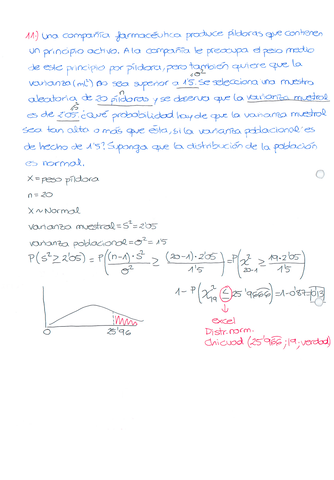 11.) Una compañía farmacéutica produce píldoras que contienen
un principio activo. A la compañía le preocupa el peso medio
de este principio por píldora, pero también quiere que la
varianza (mL²) no sea superior a 1'5. Se selecciona una muestra
aleatoria de 20 píldoras y se observa que la varianza muestral
es de 2'05 ¿qué probabilidad hay de que la varianza muestral
sea tan alto o más que ésta, si la varianza poblacional es
de hecho de 1'5? Suponga que la distribución de la población
es normal.
X = peso píldora
n = 20
X ~ Normal
varianza muestral = S² = 2'05
varianza poblacional = σ² = 1'5
P(S² ≥ 2'05) = P((n-1)·S²/σ² ≥ (20-1)·2'05/1'5) = P(χ²20-1 ≥ 19·2'05/1'5)
1 - P(χ²19 ≤ 25'9666) = 1 - 0'87 = 0'13
0 25'96
excel
Distr.norm.
Chicuad (25'966; 19; verdad)